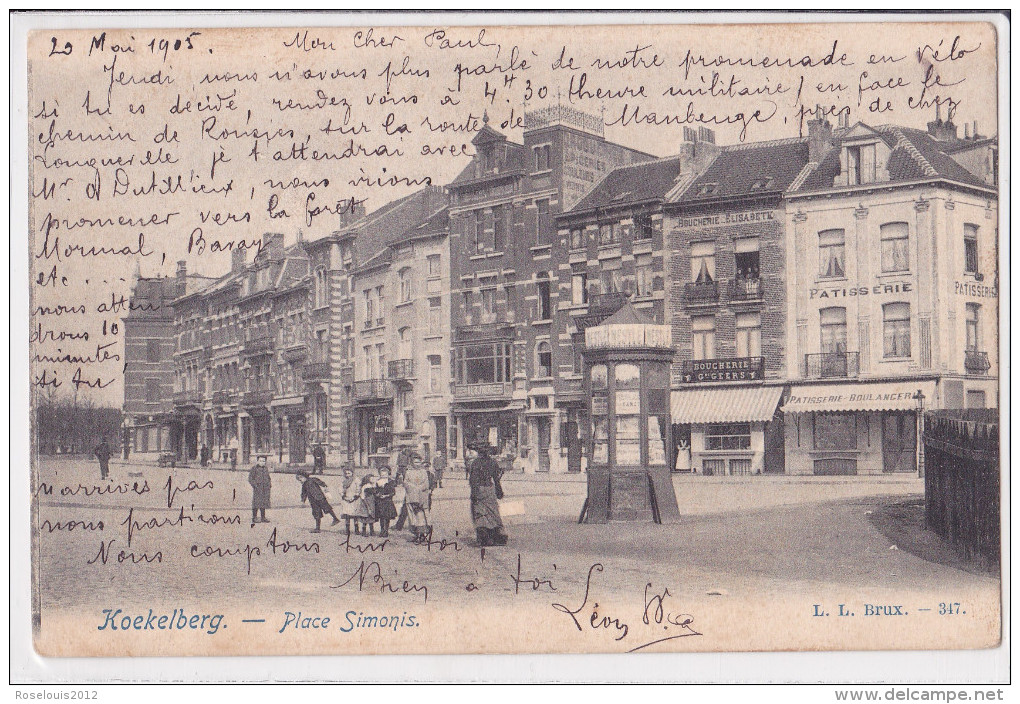 20 Mai 1905. Mon Cher Paul,
Jeudi nous n'avons plus parlé de notre promenade en vélo
si tu es décidé, rendez vous à 4h 30 (heure militaire) en face le
chemin de Rousies, sur la route de Maubeuge, près de chez
Longueville je t'attendrai avec
Mr A Dutilleux, nous irions
promener vers la forêt
Mormal, Bavay
etc ...
nous atten
drons 10
minutes,
si tu
n'arrives pas,
nous partirons.
Nous comptons sur toi,
Bien à toi
Léon
BOUCHERIE ELISABETH
PATISSERIE
PATISSERIE
BOUCHERIE
Gme GEERS
PATISSERIE-BOULANGERIE
Koekelberg. — Place Simonis.
L. L. Brux. — 347.
Roselouis2012
http://www.delcampe.net